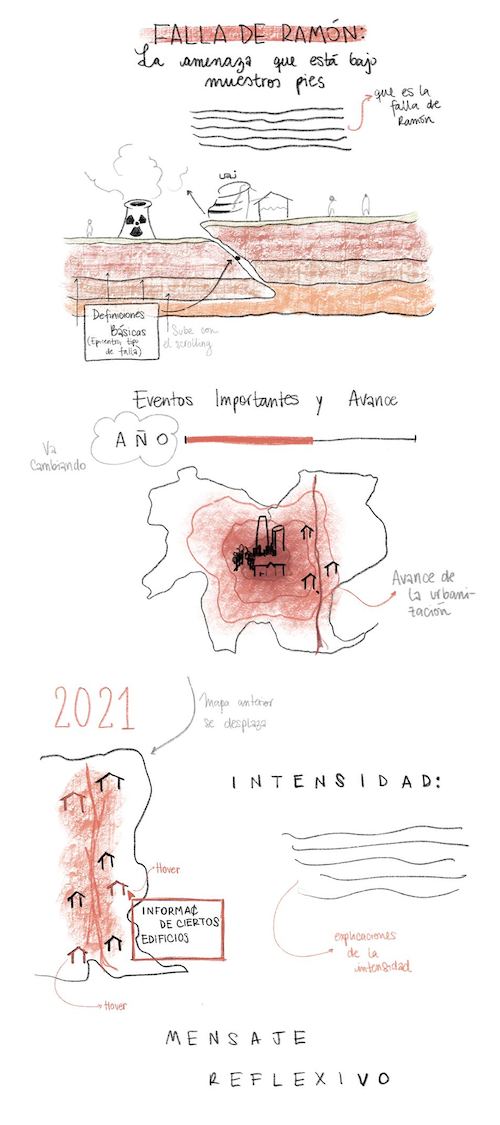 FALLA DE RAMÓN:
La amenaza que está bajo
nuestros pies
que es la
falla de
Ramón
uai
Definiciones
Básicas
(Epicentro, tipo
de falla)
Sube con
el scrolling
Eventos Importantes y Avance
AÑO
Va
Cambiando
Avance de
la urbani-
zación
2021
Mapa anterior
se desplaza
INTENSIDAD:
Hover
INFORMAC
DE CIERTOS
EDIFICIOS
explicaciones
de la
intensidad
Hover
MENSAJE
REFLEXIVO